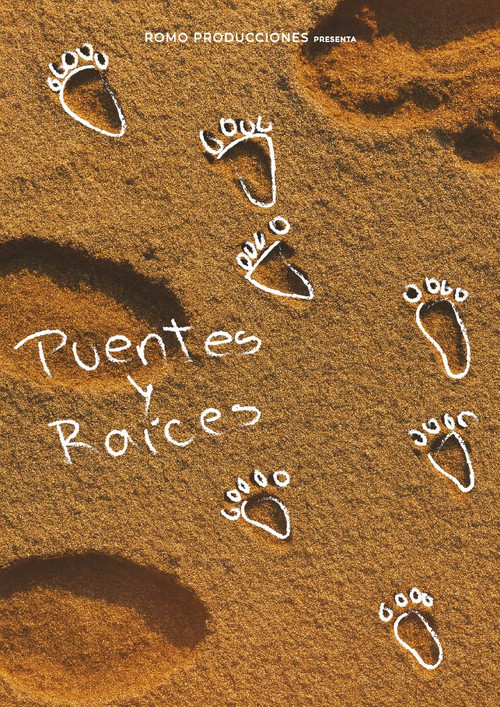 ROMO PRODUCCIONES PRESENTA
Puentes
y
Raíces